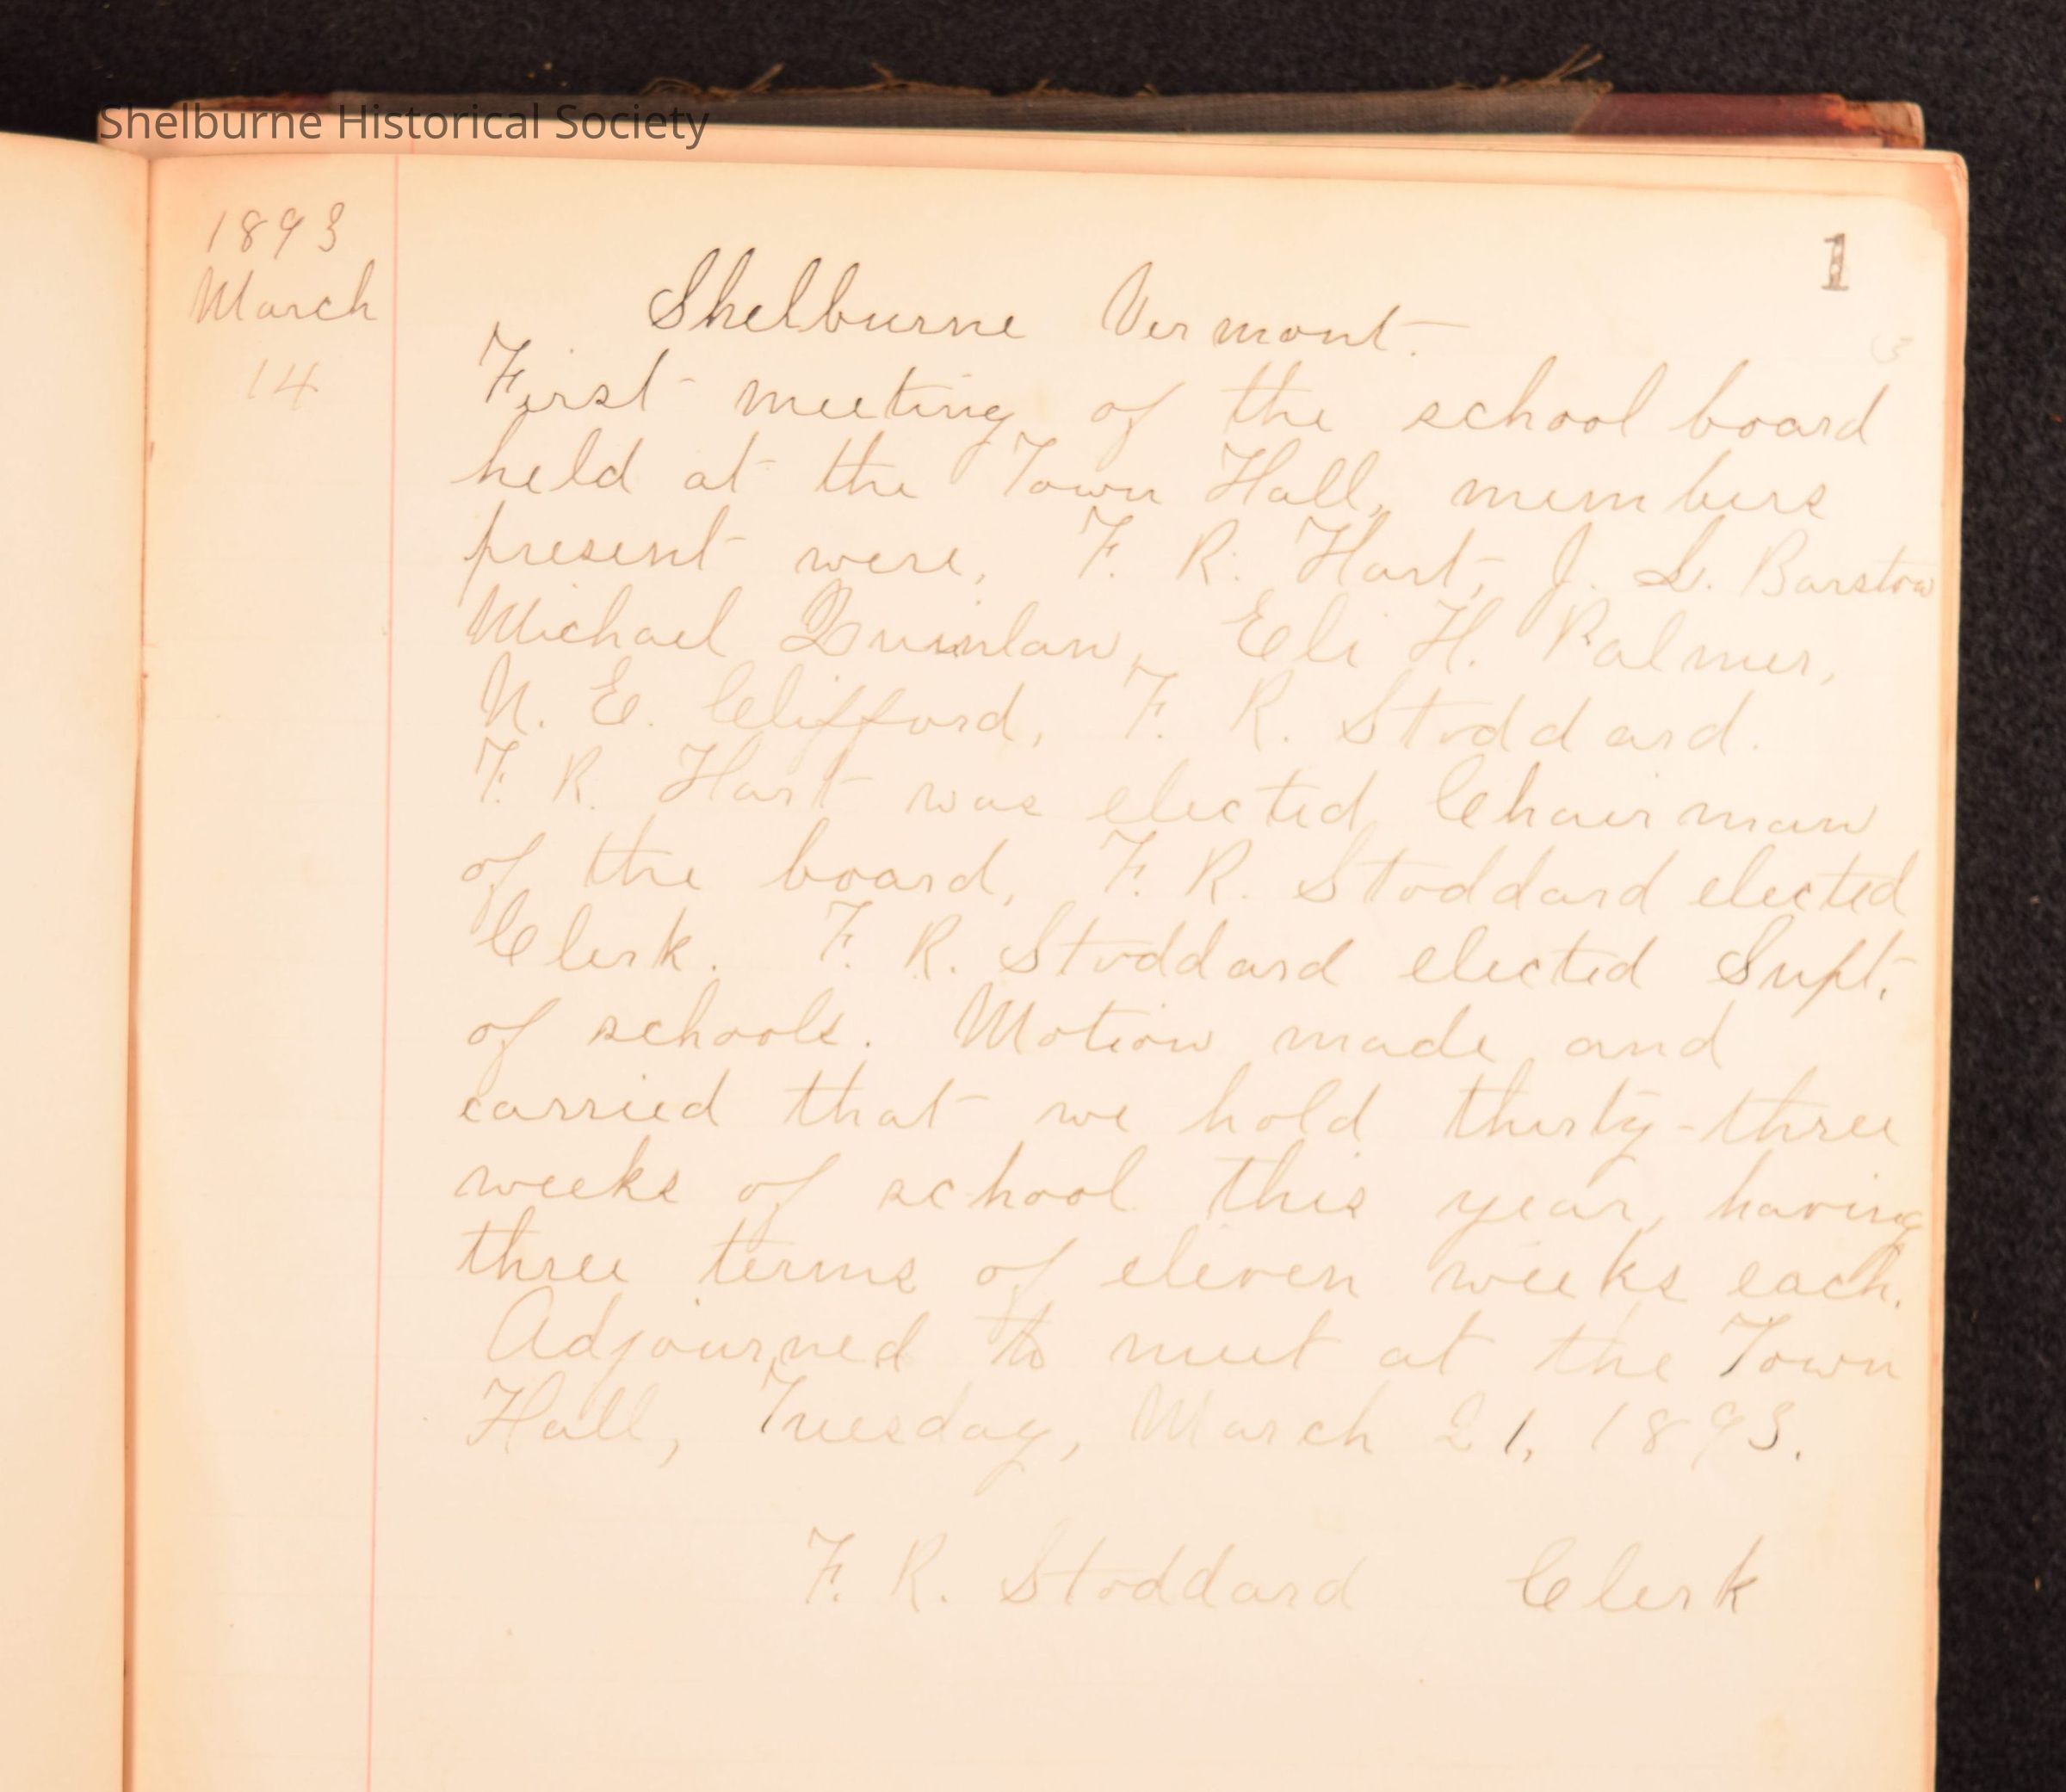 Shelburne Historical Society
1
1893
March
14
Shelburne Vermont.
First meeting of the school board
held at the Town Hall, members
present were, F. R. Hart, J. L. Barstow
Michael Quinlan, Eli H. Palmer,
N. E. Clifford, F. R. Stoddard.
F. R. Hart was elected Chairman
of the board, F. R. Stoddard elected
Clerk. F. R. Stoddard elected Supt.
of schools. Motion made and
carried that we hold thirty-three
weeks of school this year, having
three terms of eleven weeks each.
Adjourned to meet at the Town
Hall, Tuesday, March 21, 1893.
F. R. Stoddard Clerk